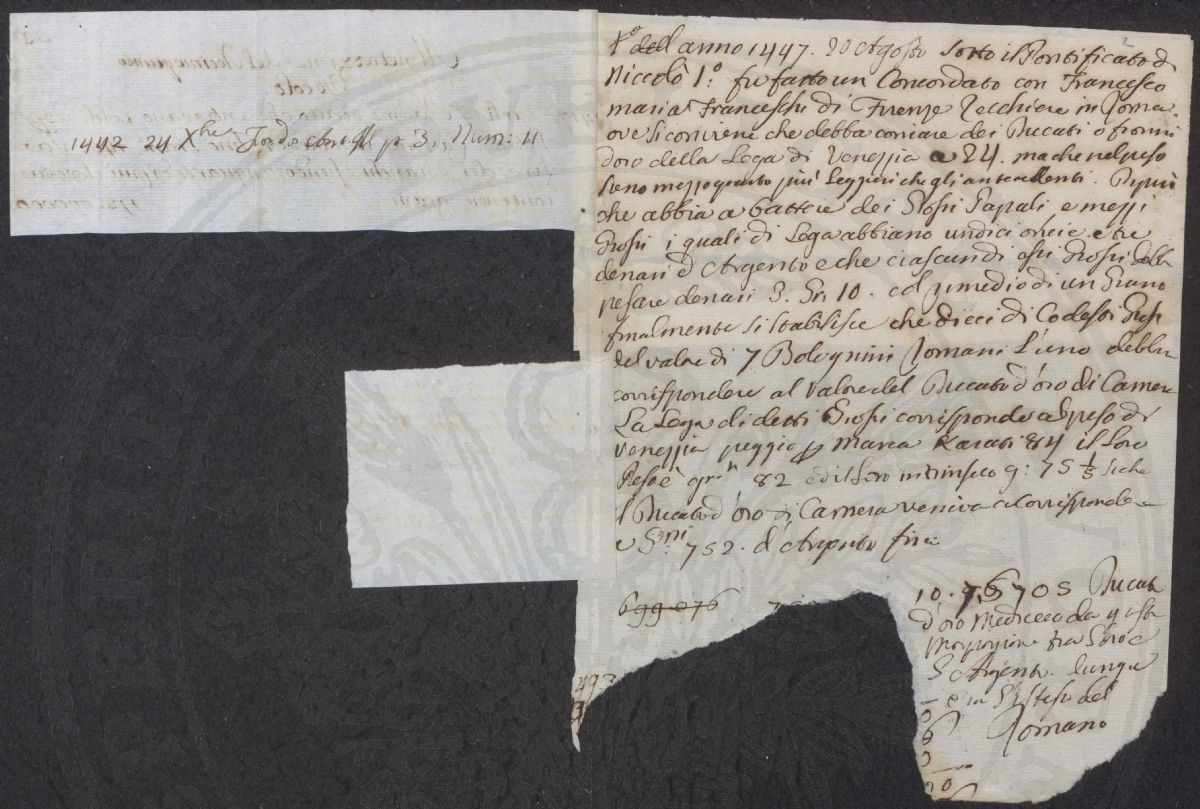 1442 24 Xbre p. 3. Num: 4
dell anno 1447. 20 Agosto sotto il Pontificato di
Niccolò 1.º fu fatto un Concordato con Francesco
maria Franceschi di Firenze Zecchiere in Roma
ove si che debba coniare dei Ducati o fiorini
doro della Lega di Venezzia a 24. ma che nel peso
sieno mezzo grano più leggieri che gli antecedenti. Di più
che abbia a battere dei Grossi Papali e mezzi
Grossi i quali di Lega abbiano undici oncie e tre
denari d'Argento e che ciascun di essi Grossi debba
pesare denari 3. Gr. 10. col rimedio di un Grano
finalmente si stabilisce che dieci di Codesti Grossi
del valore di 7 Bolognini Romani l'uno debba
corrispondere al valore del Ducato d'oro di Camera
La Lega di detti Grossi corrisponde al peso di
Venezzia peggio p Marca Karati 84 il loro
Peso è gr.ⁿ 82 ed il loro intrinseco g: 75 1/5 siche
il Ducato d'oro di Camera veniva a corrispondere
a 752. d'Argento fino
699076
10. 76705 Ducati
d'oro
fra l'oro e
l'Argento
del
Romano
493